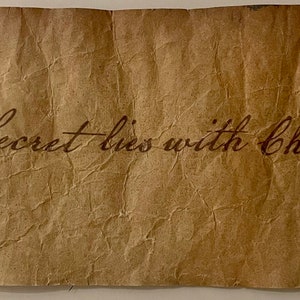 Secret lies with Ch